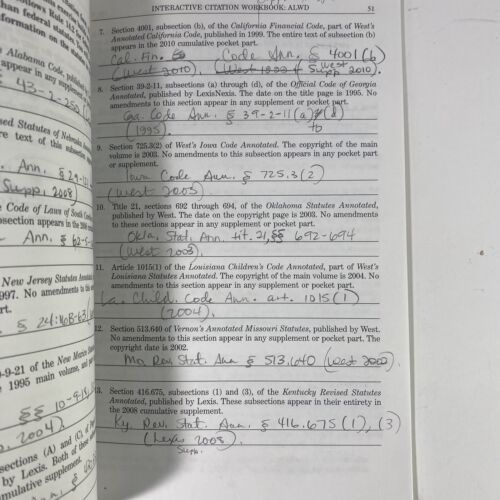 INTERACTIVE CITATION WORKBOOK, ALWD 51
7. Section 4001, subsection (b), of the California Financial Code, part of West's
Annotated California Code, published in 1999. The entire text of subsection (b)
appears in the 2010 cumulative pocket part.
Cal. Fin. Code Ann. § 4001(b)
(West 2010). (West 1999 & West Supp. 2010).
8. Section 39-2-11, subsections (a) through (d), of the Official Code of Georgia
Annotated, published by LexisNexis. The date on the title page is 1995. No
amendments to this section appear in any supplement or pocket part.
Ga. Code Ann. § 39-2-11(a) (d)
(1995). to
9. Section 725.3(2) of West's Iowa Code Annotated. The copyright of the main
volume is 2003. No amendments to this subsection appear in any pocket part
or supplement.
Iowa Code Ann. § 725.3(2)
(West 2003).
10. Title 21, sections 692 through 694, of the Oklahoma Statutes Annotated,
published by West. The date on the copyright page is 2003. No amendments to
these sections appear in any supplement or pocket part.
Okla. Stat. Ann. tit. 21, §§ 692-694
(West 2003).
11. Article 1015(1) of the Louisiana Children's Code Annotated, part of West's
Louisiana Statutes Annotated. The copyright of the main volume is 2004. No
amendments to this section appear in any supplement or pocket part.
La. Child. Code Ann. art. 1015(1)
(2004).
12. Section 513.640 of Vernon's Annotated Missouri Statutes, published by West.
No amendments to this section appear in any supplement or pocket part. The
copyright date is 2002.
Mo. Rev. Stat. Ann. § 513.640 (West 2002).
13. Section 416.675, subsections (1) and (3), of the Kentucky Revised Statutes
Annotated, published by Lexis. These subsections appear in their entirety in
the 2008 cumulative supplement.
Ky. Rev. Stat. Ann. § 416.675(1), (3)
(Lexis 2008).
Supp.
than federal statutes
formation on the
Alabama Code,
appear in any
§ 43-2-250
ed Statutes of Nebraska
re text of this subsection
. Ann. § 29-
Supp. 2008)
Code of Laws of South
section appears in the
Ann. § 62-5
New Jersey Statutes
997. No amendments to
rt.
-9-21 of the New Mexico
1995 main volume, and
§§ 10-9-18
. 2004).
sections (A) and (C), of
by Lexis. Both of these
mulative supplement.